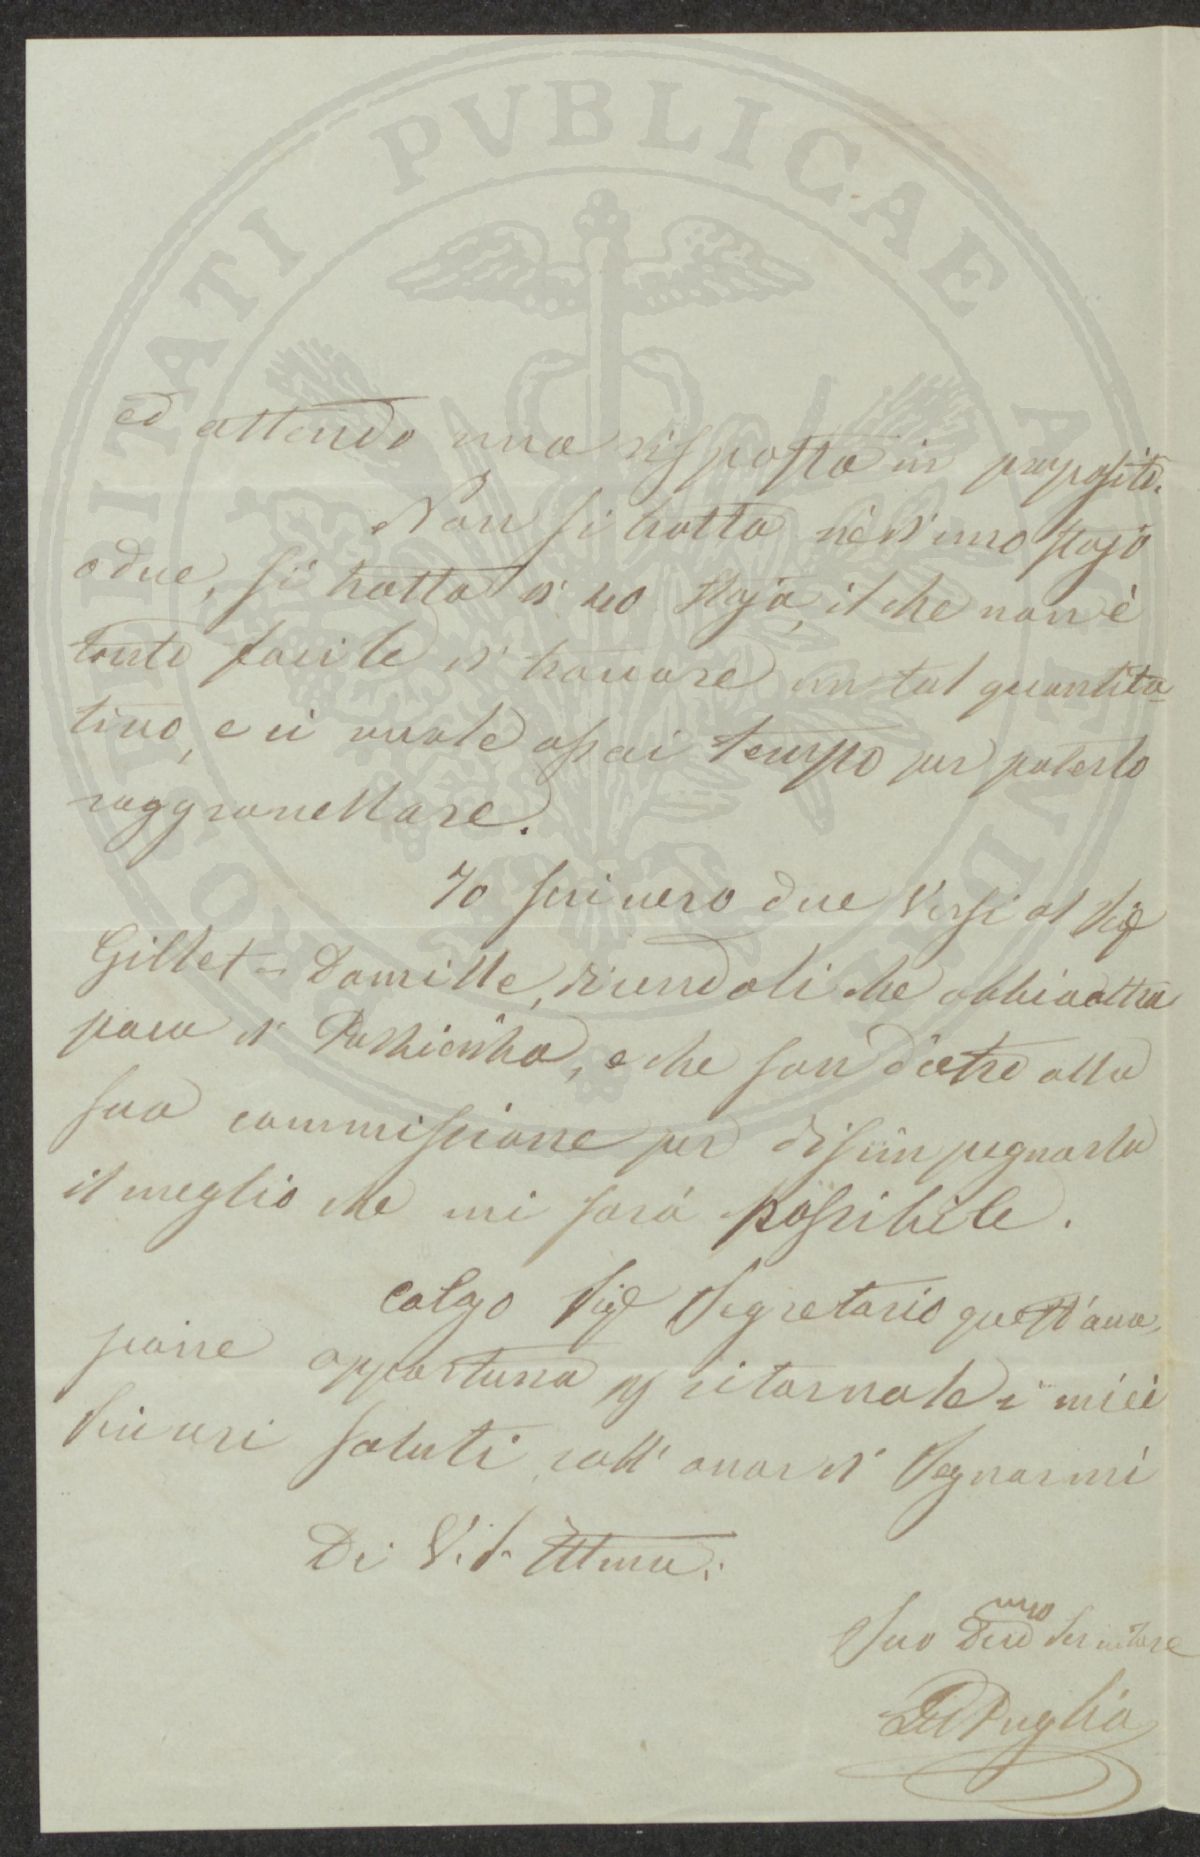 PROSPERITATI PVBLICAE AVGENDAE
ed attendo una risposta in proposito.
Non si tratta nè d'uno stajo
o due, si tratta di 40 staja, il che non è
tanto facile di trovare un tal quantita-
tivo, e ci vuole assai tempo per poterlo
raggranellare.
Io scriverò due versi al Sigr
Gillet-Damitte, dicendoli che abbia altra
poca di Pazienza, e che son dietro alla
sua commissione per disimpegnarla
il meglio che mi sarà possibile.
Colgo Sigr Segretario quest'oca-
sione opportuna di ritornale i miei
sinceri saluti, coll' onor di segnarmi
Di V. S. Illma:
Suo Devmo Servitore
Puglia